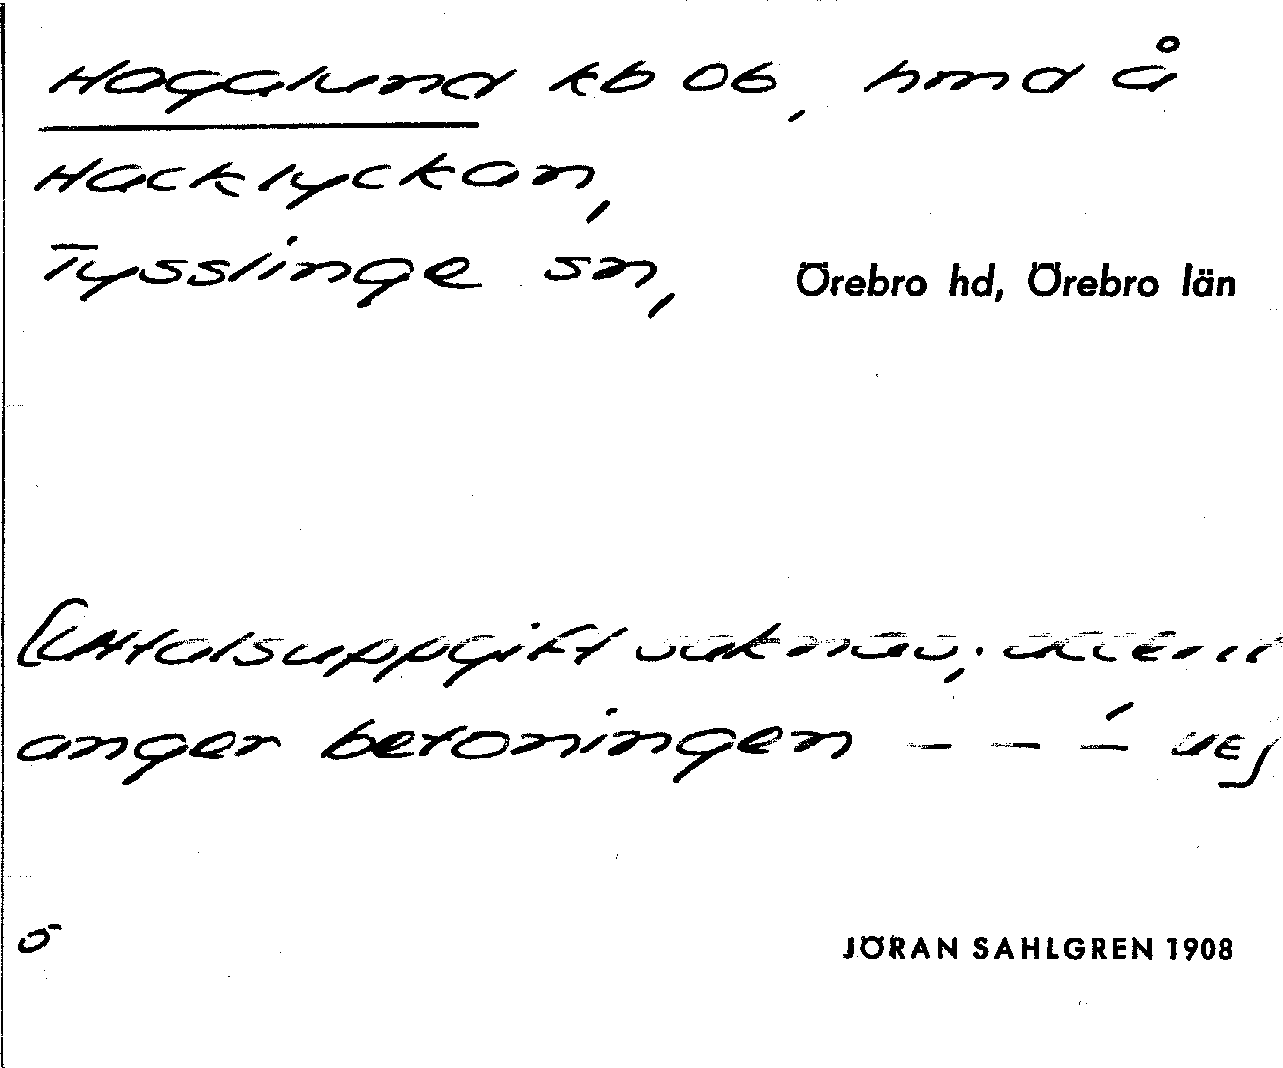 Hagalund kb 06, hmd å
Hacklyckan,
Tysslinge sn, Örebro hd, Örebro län
[Uttalsuppgift saknas; accent
anger betoningen – – –
JÖRAN SAHLGREN 1908